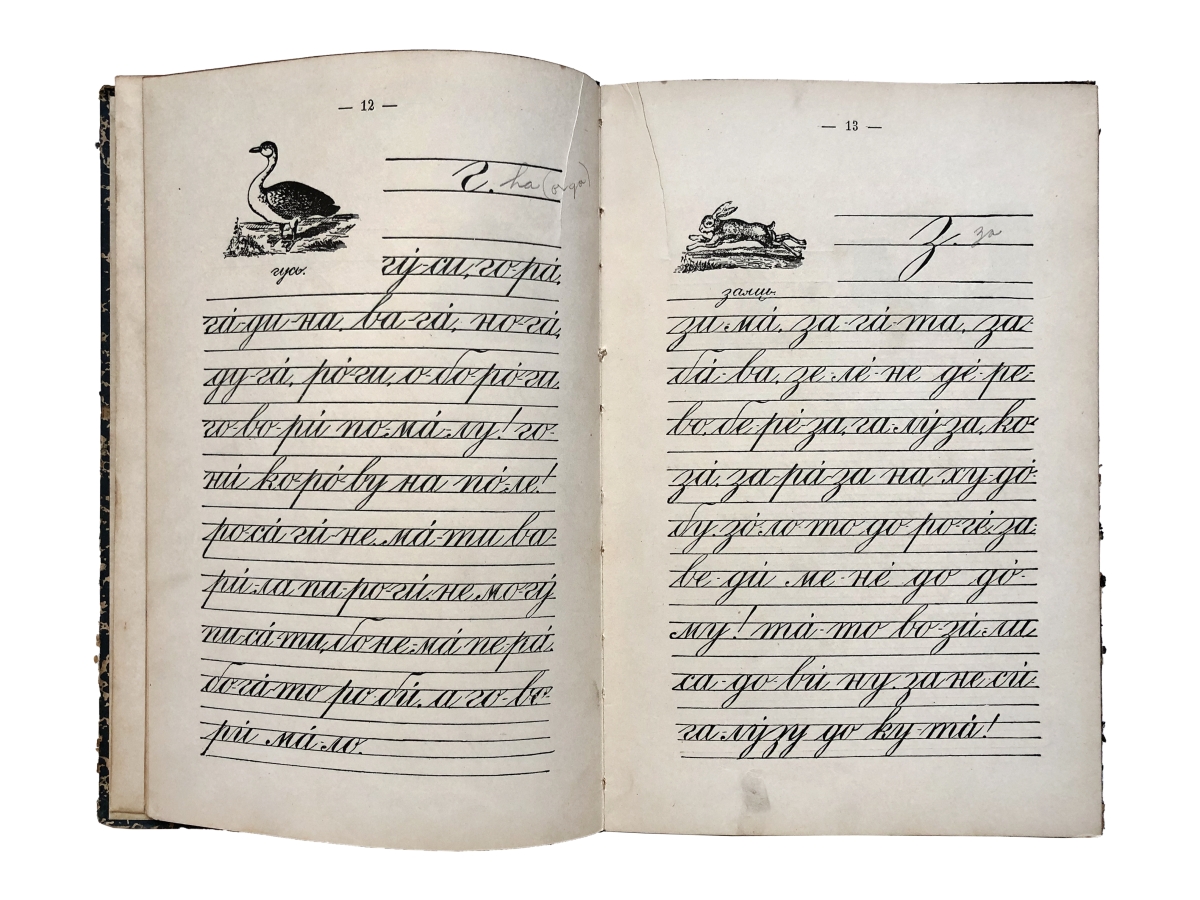 — 12 —
г. ha
гусь.
гу́-си, го-ра́,
га́-ди-на, ва-га́, но-га́,
ду-га́, ро́-ги, о-бо-ро́-ги,
го-во-ри́ по-ма́-лу! го-
ни́ ко-ро́-ву на по́-ле!
ро-са́ ги́-не. ма́-ти ва-
ри́-ла пи-ро-ги́. не мо-гу́
пи-са́-ти, бо не-ма́ пе-ра́.
бо-га́-то ро-би́, а го-во-
ри́ ма́-ло.
— 13 —
З. за
заяць.
зи-ма́, за-га́-та, за-
ба́-ва, зе-ле́-не де́-ре-
во, бе-ре́-за, га-лу́-за, ко-
за́, за-ра́-за на ху-до́-
бу, зо́-ло-то до-ро-ге́, за-
ве-ди́ ме-не́ до до́-
му! та́-то во-зи́-ли
са-до-ви-ну́. за-не-си́
га-лу́-зу до ку-та́!